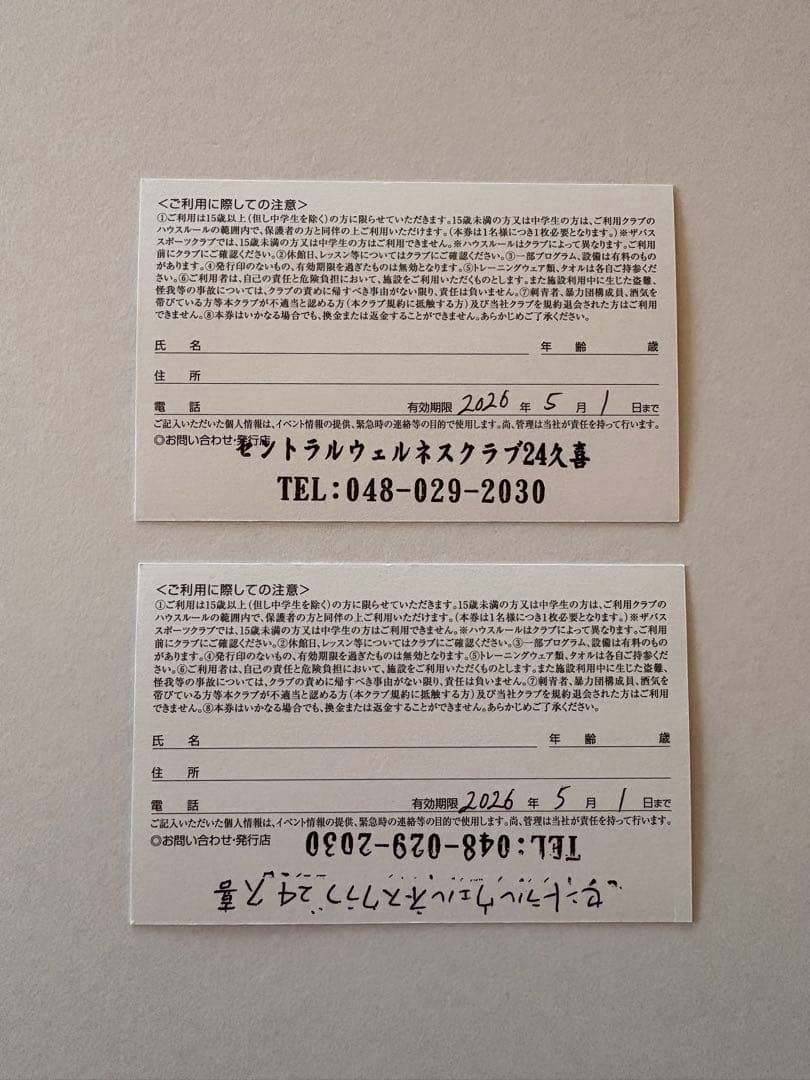 <ご利用に際しての注意>
①ご利用は15歳以上(但し中学生を除く)の方に限らせていただきます。15歳未満の方又は中学生の方は、ご利用クラブの
ハウスルールの範囲内で、保護者の方と同伴の上ご利用いただけます。(本券は1名様につき1枚必要となります。)※ザバス
スポーツクラブでは、15歳未満の方又は中学生の方はご利用できません。※ハウスルールはクラブによって異なります。ご利用
前にクラブにご確認ください。②休館日、レッスン等についてはクラブにご確認ください。③一部プログラム、設備は有料のもの
があります。④発行印のないもの、有効期限を過ぎたものは無効となります。⑤トレーニングウェア類、タオルは各自ご持参くだ
さい。⑥ご利用者は、自己の責任と危険負担において、施設をご利用いただくものとします。また施設利用中に生じた盗難、
怪我等の事故については、クラブの責めに帰すべき事由がない限り、責任は負いません。⑦刺青者、暴力団構成員、酒気を
帯びている方等本クラブが不適当と認める方(本クラブ規約に抵触する方)及び当社クラブを規約退会された方はご利用
できません。⑧本券はいかなる場合でも、換金または返金することができません。あらかじめご了承ください。
氏 名 年 齢 歳
住 所
電 話 有効期限 2026 年 5 月 1 日まで
ご記入いただいた個人情報は、イベント情報の提供、緊急時の連絡等の目的で使用します。尚、管理は当社が責任を持って行います。
◎お問い合わせ・発行店
セントラルウェルネスクラブ24久喜
TEL:048-029-2030
<ご利用に際しての注意>
①ご利用は15歳以上(但し中学生を除く)の方に限らせていただきます。15歳未満の方又は中学生の方は、ご利用クラブの
ハウスルールの範囲内で、保護者の方と同伴の上ご利用いただけます。(本券は1名様につき1枚必要となります。)※ザバス
スポーツクラブでは、15歳未満の方又は中学生の方はご利用できません。※ハウスルールはクラブによって異なります。ご利用
前にクラブにご確認ください。②休館日、レッスン等についてはクラブにご確認ください。③一部プログラム、設備は有料のもの
があります。④発行印のないもの、有効期限を過ぎたものは無効となります。⑤トレーニングウェア類、タオルは各自ご持参くだ
さい。⑥ご利用者は、自己の責任と危険負担において、施設をご利用いただくものとします。また施設利用中に生じた盗難、
怪我等の事故については、クラブの責めに帰すべき事由がない限り、責任は負いません。⑦刺青者、暴力団構成員、酒気を
帯びている方等本クラブが不適当と認める方(本クラブ規約に抵触する方)及び当社クラブを規約退会された方はご利用
できません。⑧本券はいかなる場合でも、換金または返金することができません。あらかじめご了承ください。
氏 名 年 齢 歳
住 所
電 話 有効期限 2026 年 5 月 1 日まで
ご記入いただいた個人情報は、イベント情報の提供、緊急時の連絡等の目的で使用します。尚、管理は当社が責任を持って行います。
◎お問い合わせ・発行店
セントラルウェルネスクラブ24久喜
TEL:048-029-2030